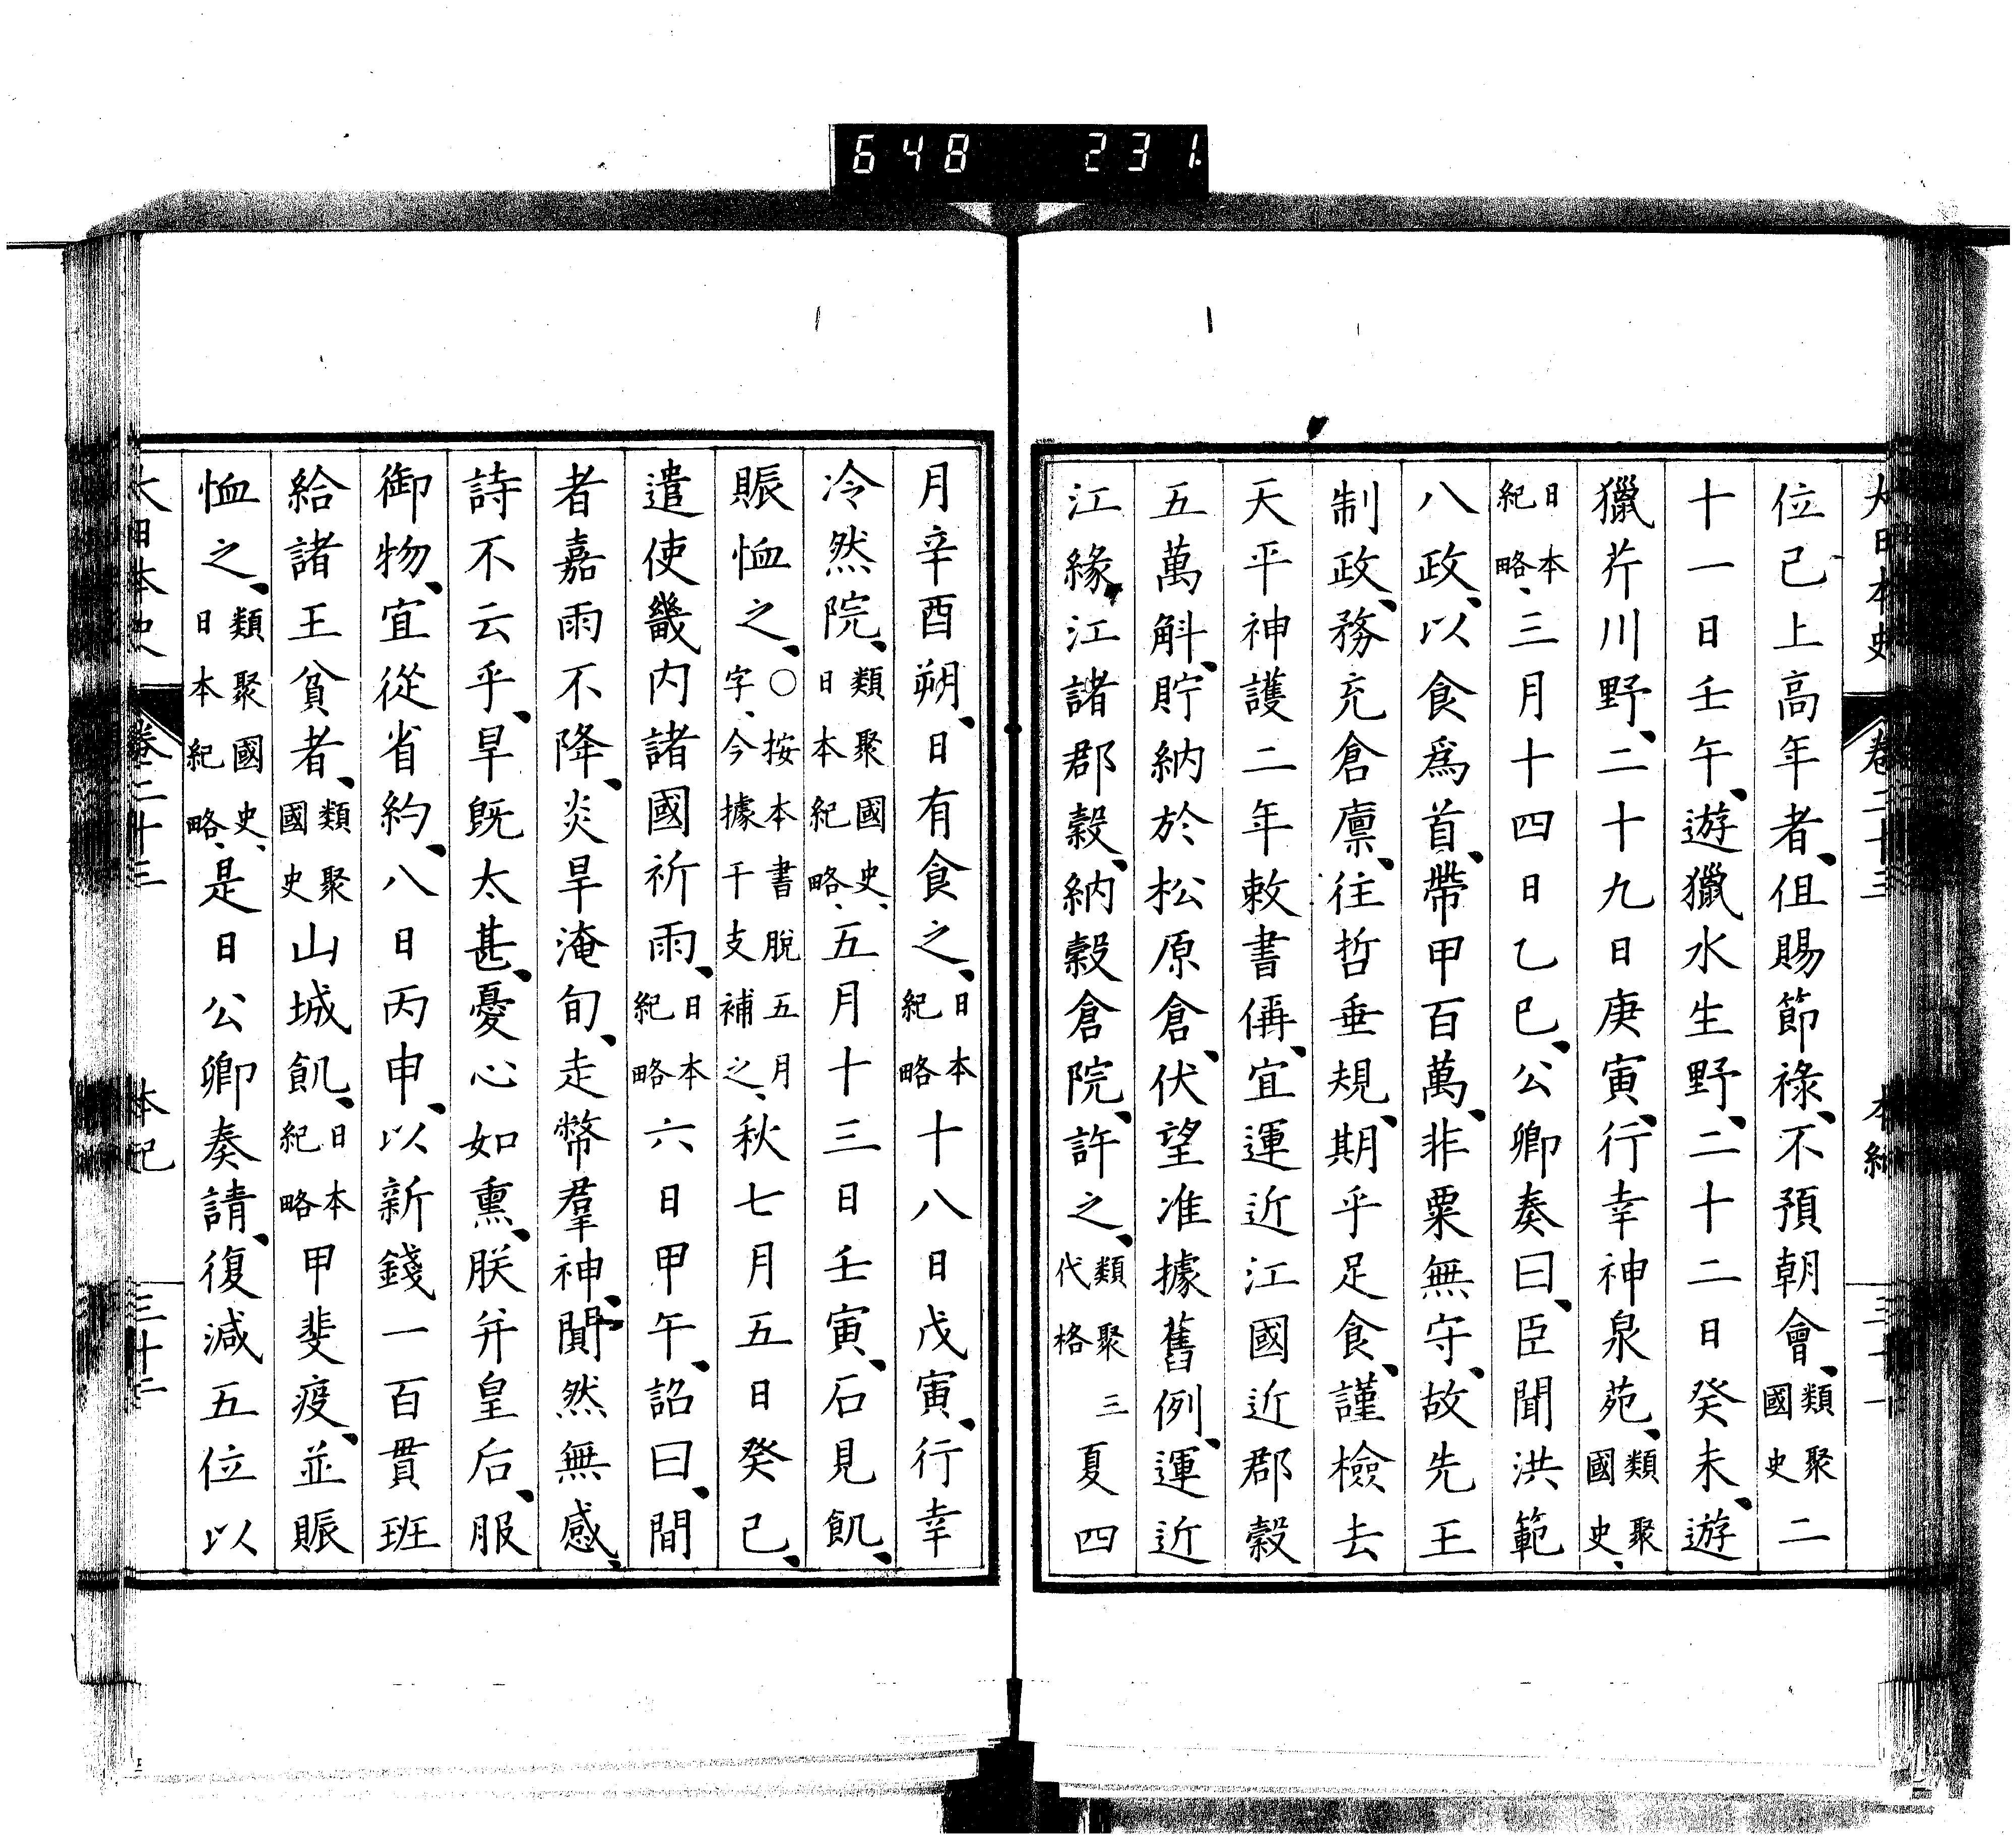 648 231
大日本史 卷二十三 本紀 三十一
位已上高年者、但賜節祿、不預朝會、類聚國史二
十一日壬午、遊獵水生野、二十二日癸未、遊
獵芹川野、二十九日庚寅、行幸神泉苑、類聚國史、
日本紀略、三月十四日乙巳、公卿奏曰、臣聞洪範
八政、以食爲首、帶甲百萬、非粟無守、故先王
制政、務充倉廩、往哲垂規、期乎足食、謹檢去
天平神護二年敕書偁、宜運近江國近郡穀
五萬斛、貯納於松原倉、伏望准據舊例、運近
江緣江諸郡穀、納穀倉院、許之、類聚三代格夏四
月辛酉朔、日有食之、日本紀略十八日戊寅、行幸
冷然院、類聚國史、日本紀略、五月十三日壬寅、石見飢、
賑恤之、○按本書脫五月字、今據干支補之、秋七月五日癸巳、
遣使畿内諸國祈雨、日本紀略六日甲午、詔曰、間
者嘉雨不降、炎旱淹旬、走幣羣神、闃然無感、
詩不云乎、旱既太甚、憂心如熏、朕并皇后、服
御物、宜從省約、八日丙申、以新錢一百貫班
給諸王貧者、類聚國史山城飢、日本紀略甲斐疫、並賑
恤之、類聚國史、日本紀略、是日公卿奏請、復減五位以
大日本史 卷二十三 本紀 三十二